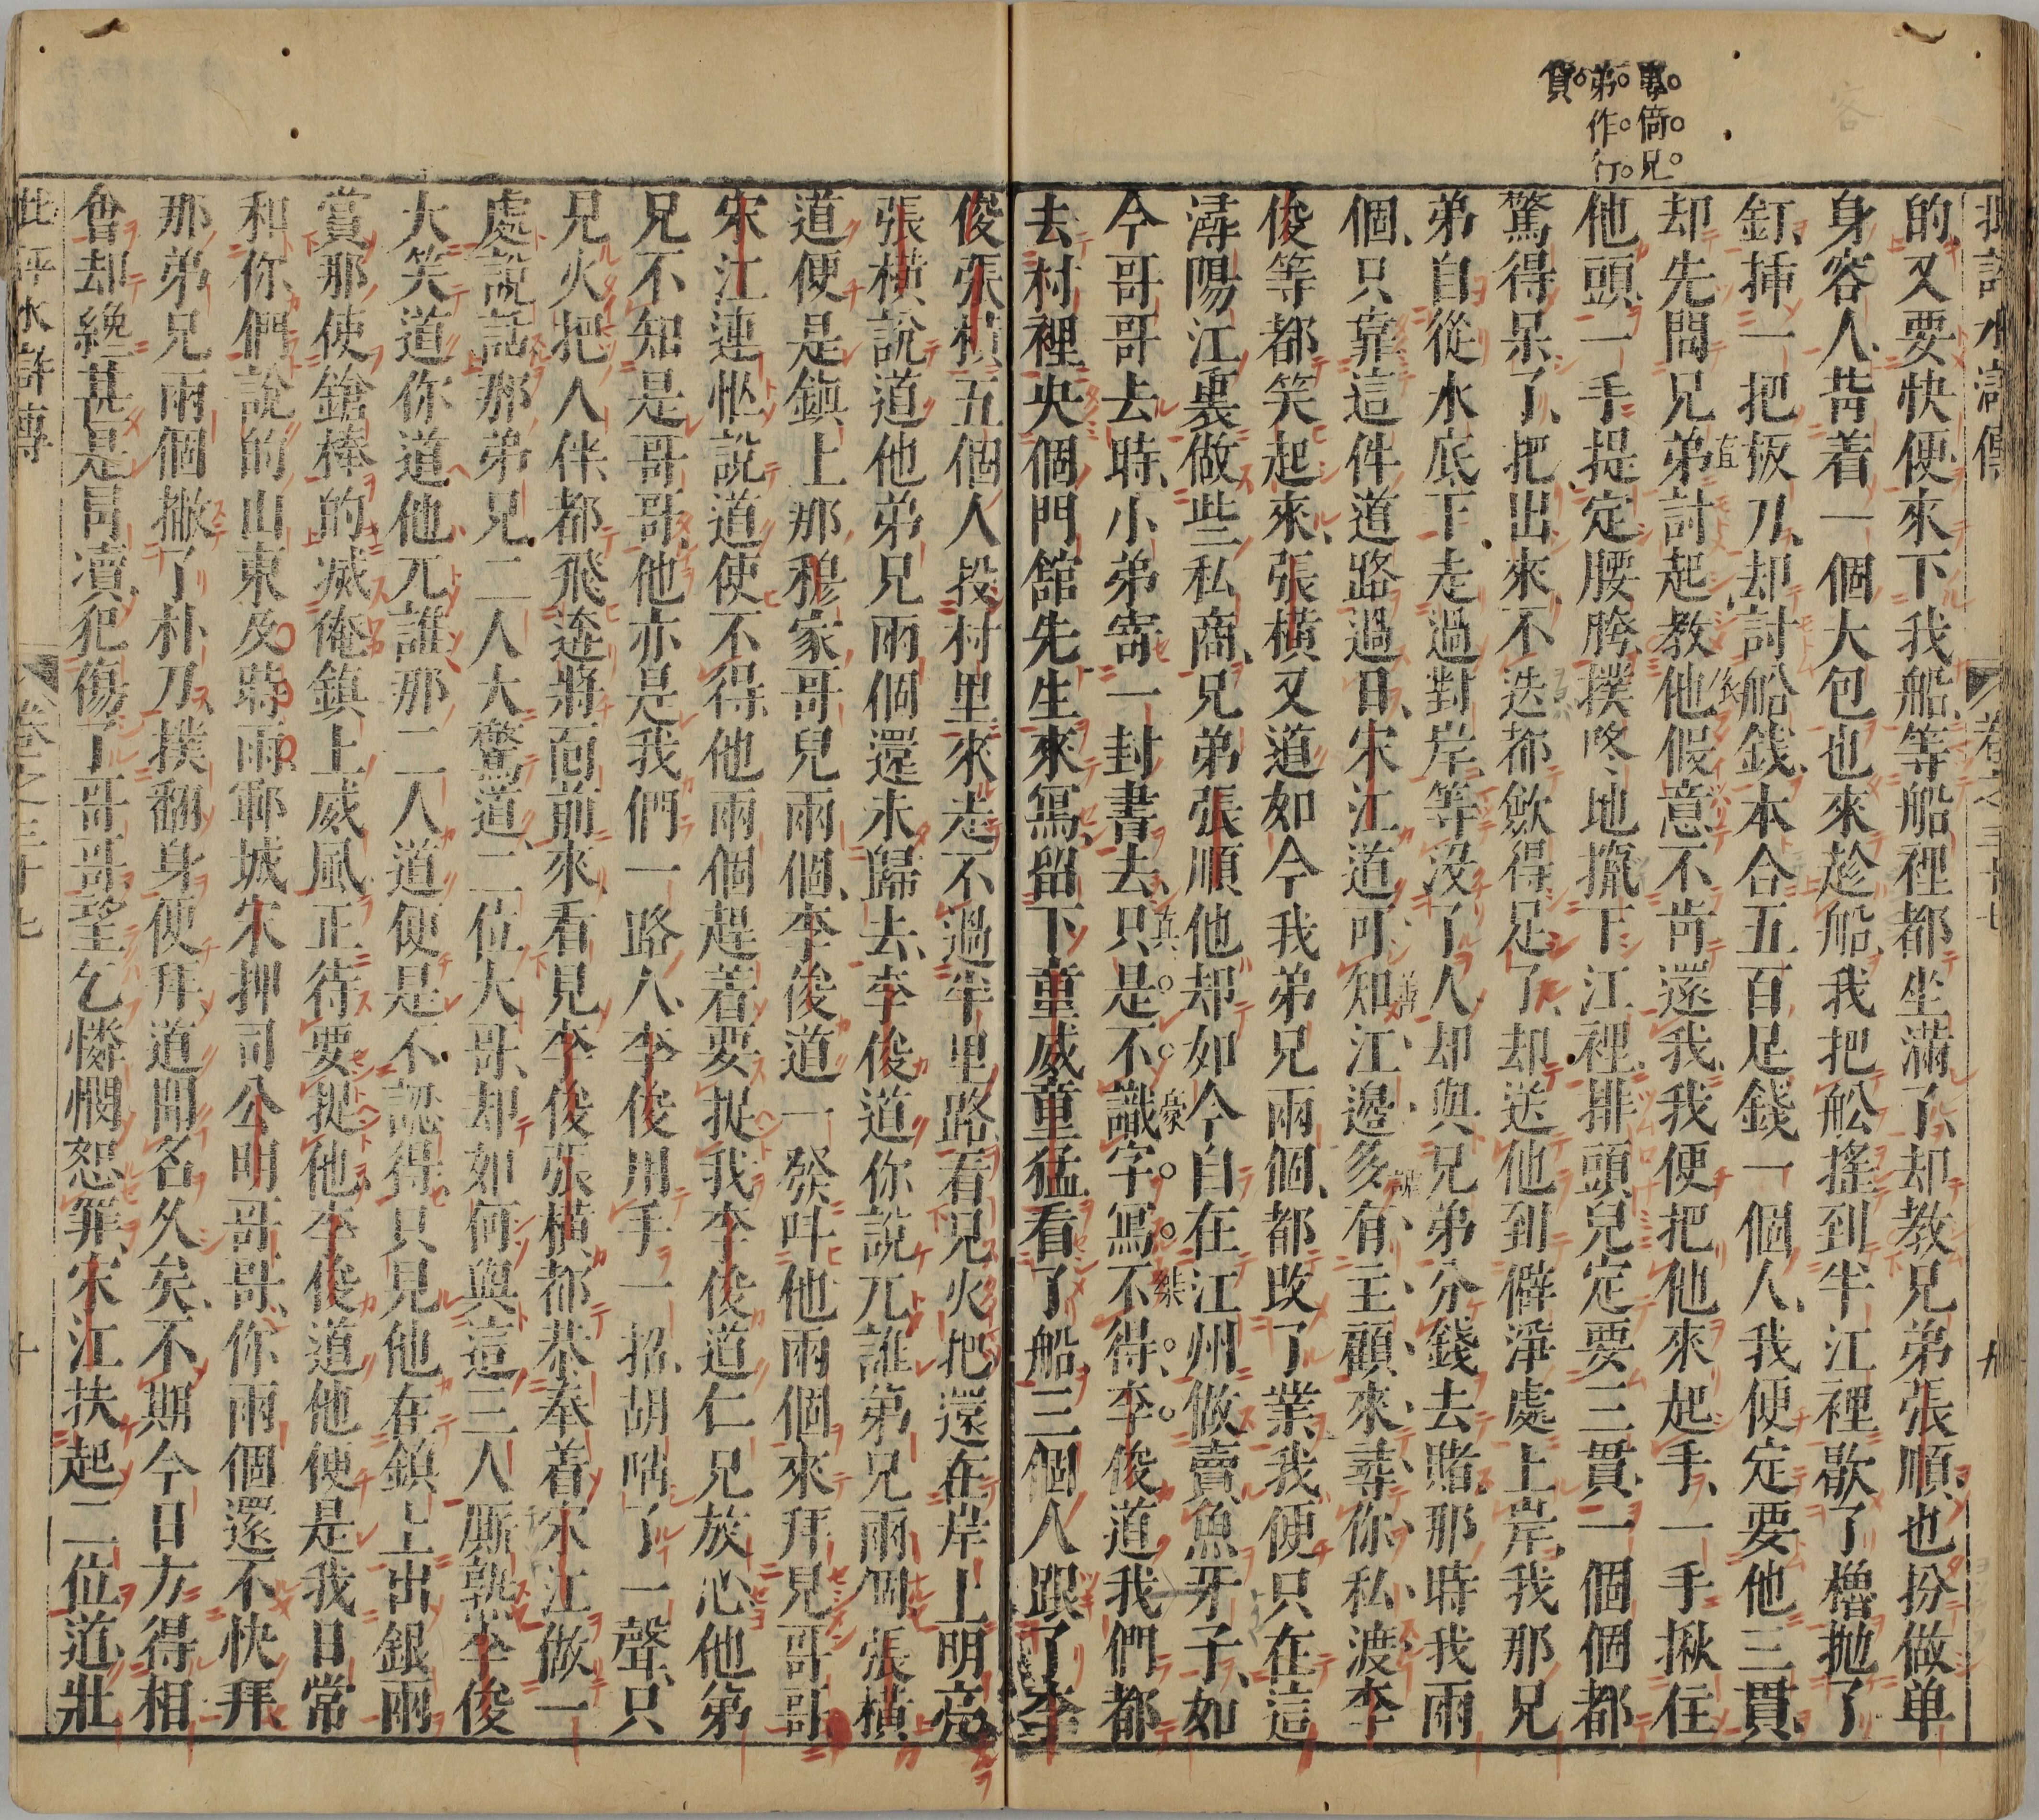 事倚兄
弟作行
貨
批評水滸傳
卷之三十七
九
的又要快便來下我船等船裡都坐滿了却教兄弟張順也扮做单
身客人背着一個大包也來趁船我把船搖到半江裡歇了櫓抛了
釘揷一把扳刀却討船錢本合五百足錢一個人我便定要他三貫
却先問兄弟討起教他假意不肯還我我便把他來起手一手揪住
他頭一手提定腰胯撲咚地攛下江裡排頭兒定要三貫一個個都
驚得呆了把出來不迭都歛得足了却送他到僻淨處上岸我那兄
弟自從水底下走過對岸等没了人却與兄弟分錢去賭那時我兩
個只靠這件道路過日宋江道可知江邊多有主顧來尋你私渡李
俊等都笑起來張橫又道如今我弟兄兩個都改了業我便只在這
潯陽江裏做些私商兄弟張順他却如今自在江州做賣魚牙子如
今哥哥去時小弟寄一封書去只是不識字寫不得李俊道我們都
去村裡央個門館先生來寫留下童威童猛看了船三個人跟了李
直
真
俊張橫五個人投村里來走不過半里路看見火把還在岸上明亮
張橫說道他弟兄兩個還未歸去李俊道你說兀誰弟兄兩個張橫
道便是鎮上那穆家哥兒兩個李俊道一發呌他兩個來拜見哥哥
宋江連忙說道使不得他兩個趕着要捉我李俊道仁兄放心他弟
兄不知是哥哥他亦是我們一路人李俊用手一招胡哨了一聲只
見火把人伴都飛迸將面前來看見李俊張橫都恭奉着宋江做一
處說話那弟兄二人大驚道二位大哥却如何與這三人厮熟李俊
大笑道你道他兀誰那二人道便是不認得只見他在鎮上出銀兩
賞那使鎗棒的滅俺鎮上威風正待要捉他李俊道他便是我日常
和你們說的山東及時雨鄆城宋押司公明哥哥你兩個還不快拜
那弟兄兩個撇了朴刀撲翻身便拜道聞名久矣不期今日方得相
會却纔甚是冐凟犯傷了哥哥望乞憐憫恕罪宋江扶起二位道壯
批評水滸傳
卷之三十七
十